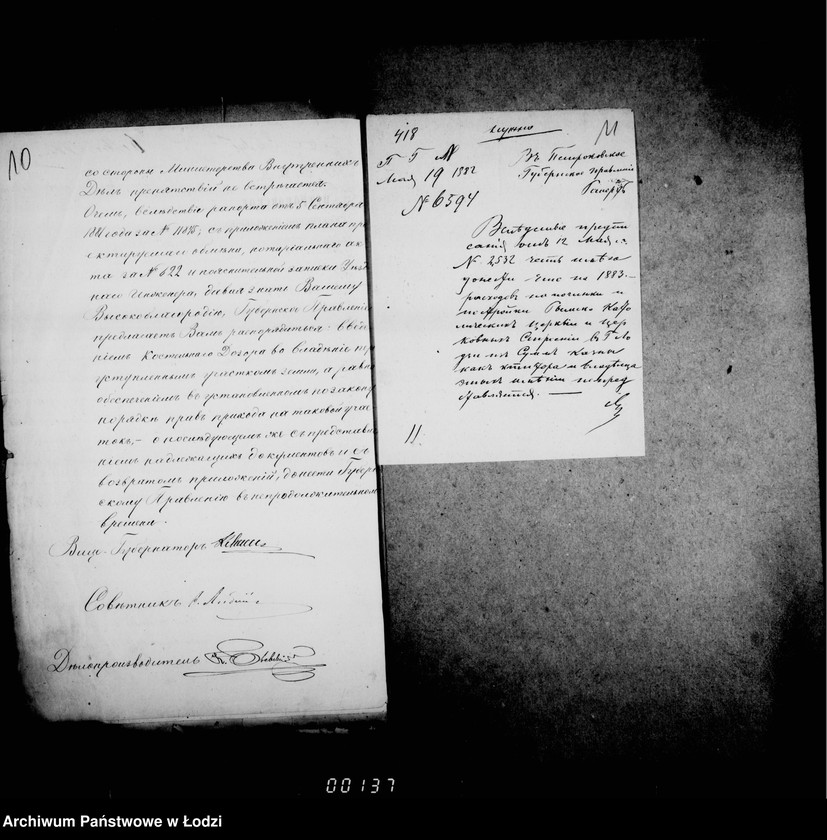 10
со стороны Министерства Внутреннихъ
Дѣлъ препятствій не встрѣчается.
О чемъ, вслѣдствіе рапорта отъ 5 Сентября
1881 года за № съ приложеніемъ плана про
ектируемаго обмѣна, нотаріальнаго ак
та за № 622 и пояснительной записки Уѣзд
наго Инженера, давая знать Вашему
Высокоблагородію, Губернское Правленіе
предлагаетъ Вамъ распорядиться введе
ніемъ Костельнаго Дозора во владѣніе пр
уступленнымъ участкомъ земли, а равно
обеспеченіемъ въ установленномъ по закону
порядкѣ правъ прихода на таковой учас
токъ, о послѣдующемъ же съ представле
ніемъ надлежащихъ документовъ и съ
возвратомъ приложеній, донести Губерн
скому Правленію въ непродолжительномъ
времени.
Вице-Губернаторъ
Совѣтникъ
Дѣлопроизводитель
418 нужно 11
П Г М
Мая 19 1882
№ 6594
Въ Петроковское
Губернское Правленіе
Вслѣдствіе предпи
санія отъ 12 Мая с.г.
№ 2532 честь имѣю
донести что на 1883
расходовъ на починки и
постройки Римско Като
лическихъ церквей и цер
ковныхъ Строеній въ Г. Ло
дзи изъ Суммъ Казны
какъ ктитора и владѣльца
имѣній не пред
ставляется.
11.
00137
Archiwum Państwowe w Łodzi